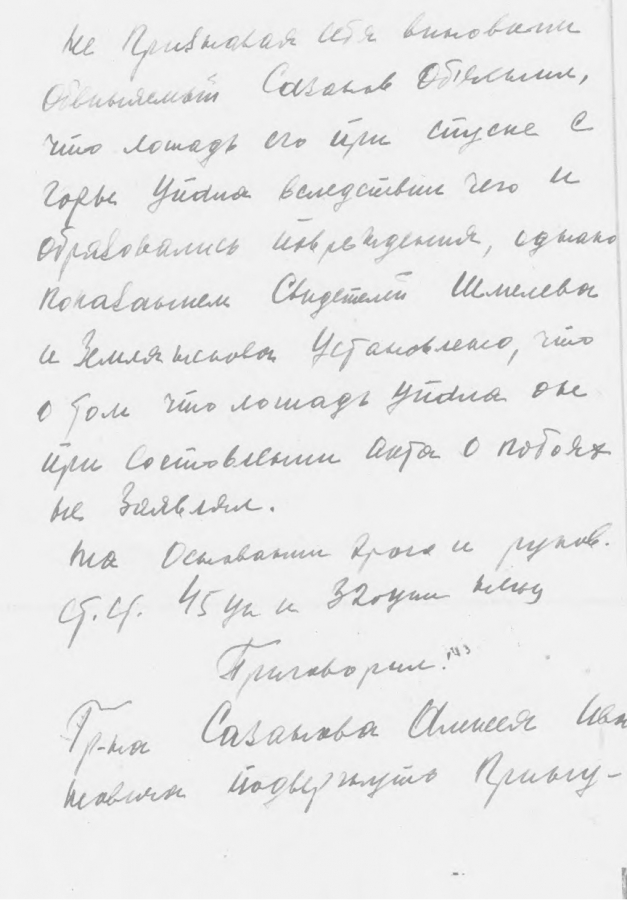 Не Признавая себя виновным
Обвиняемый Сазанов Объяснил,
что лошадь его при спуске с
горы Упала вследствии чего и
образовались повреждения, однако
показанием Свидетелей Шмелева
и Землянснова Установлено, что
о том что лошадь упала он
при составлении акта о побоях
не Заявлял.
На Основании и руков.
ст.ст. 45 ук и 320 упк
Приговорил:
Гр-на Сазанова Алексея Ива
новича подвергнуть Прину-